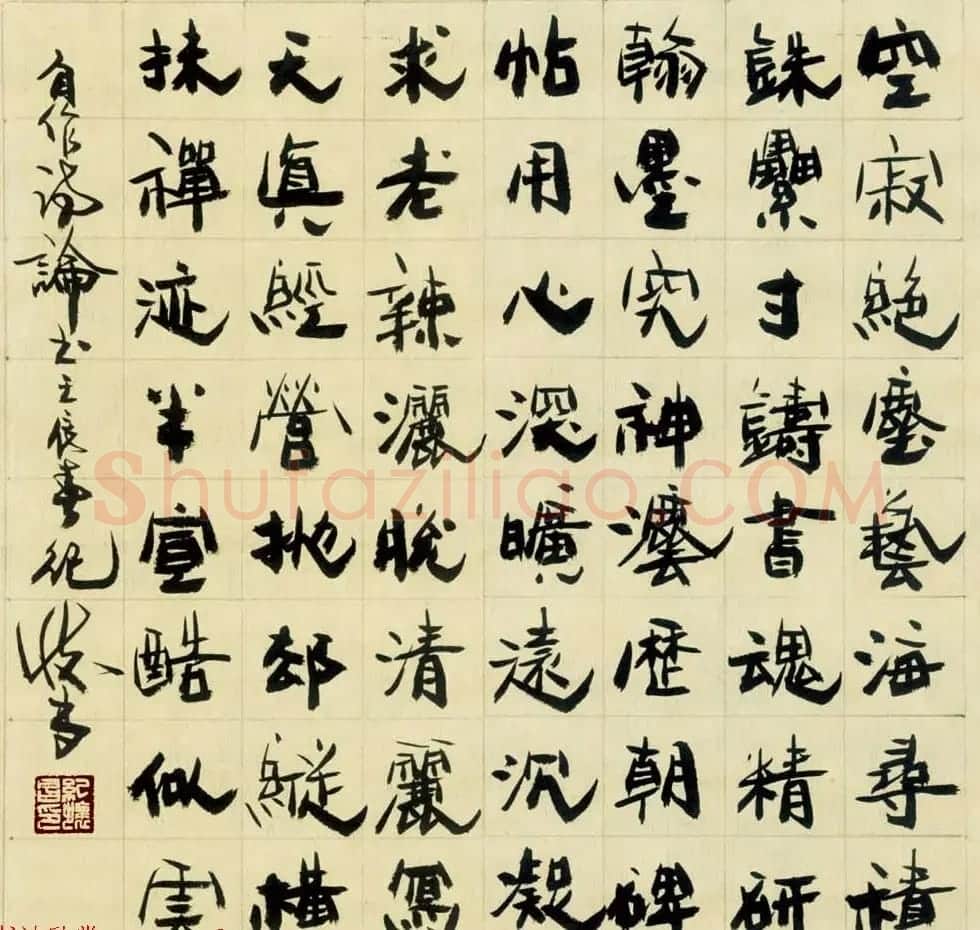 空寂絕塵藝海尋積
銖纍寸鑄書魂精研
翰墨究神瀍歷朝碑
帖用心深曠遠沉凝
求老辣灑脫清麗寫
天真經營拋却縱橫
抹禪迹半宣酷似雲
自作詩論書
Shufaziliao.COM